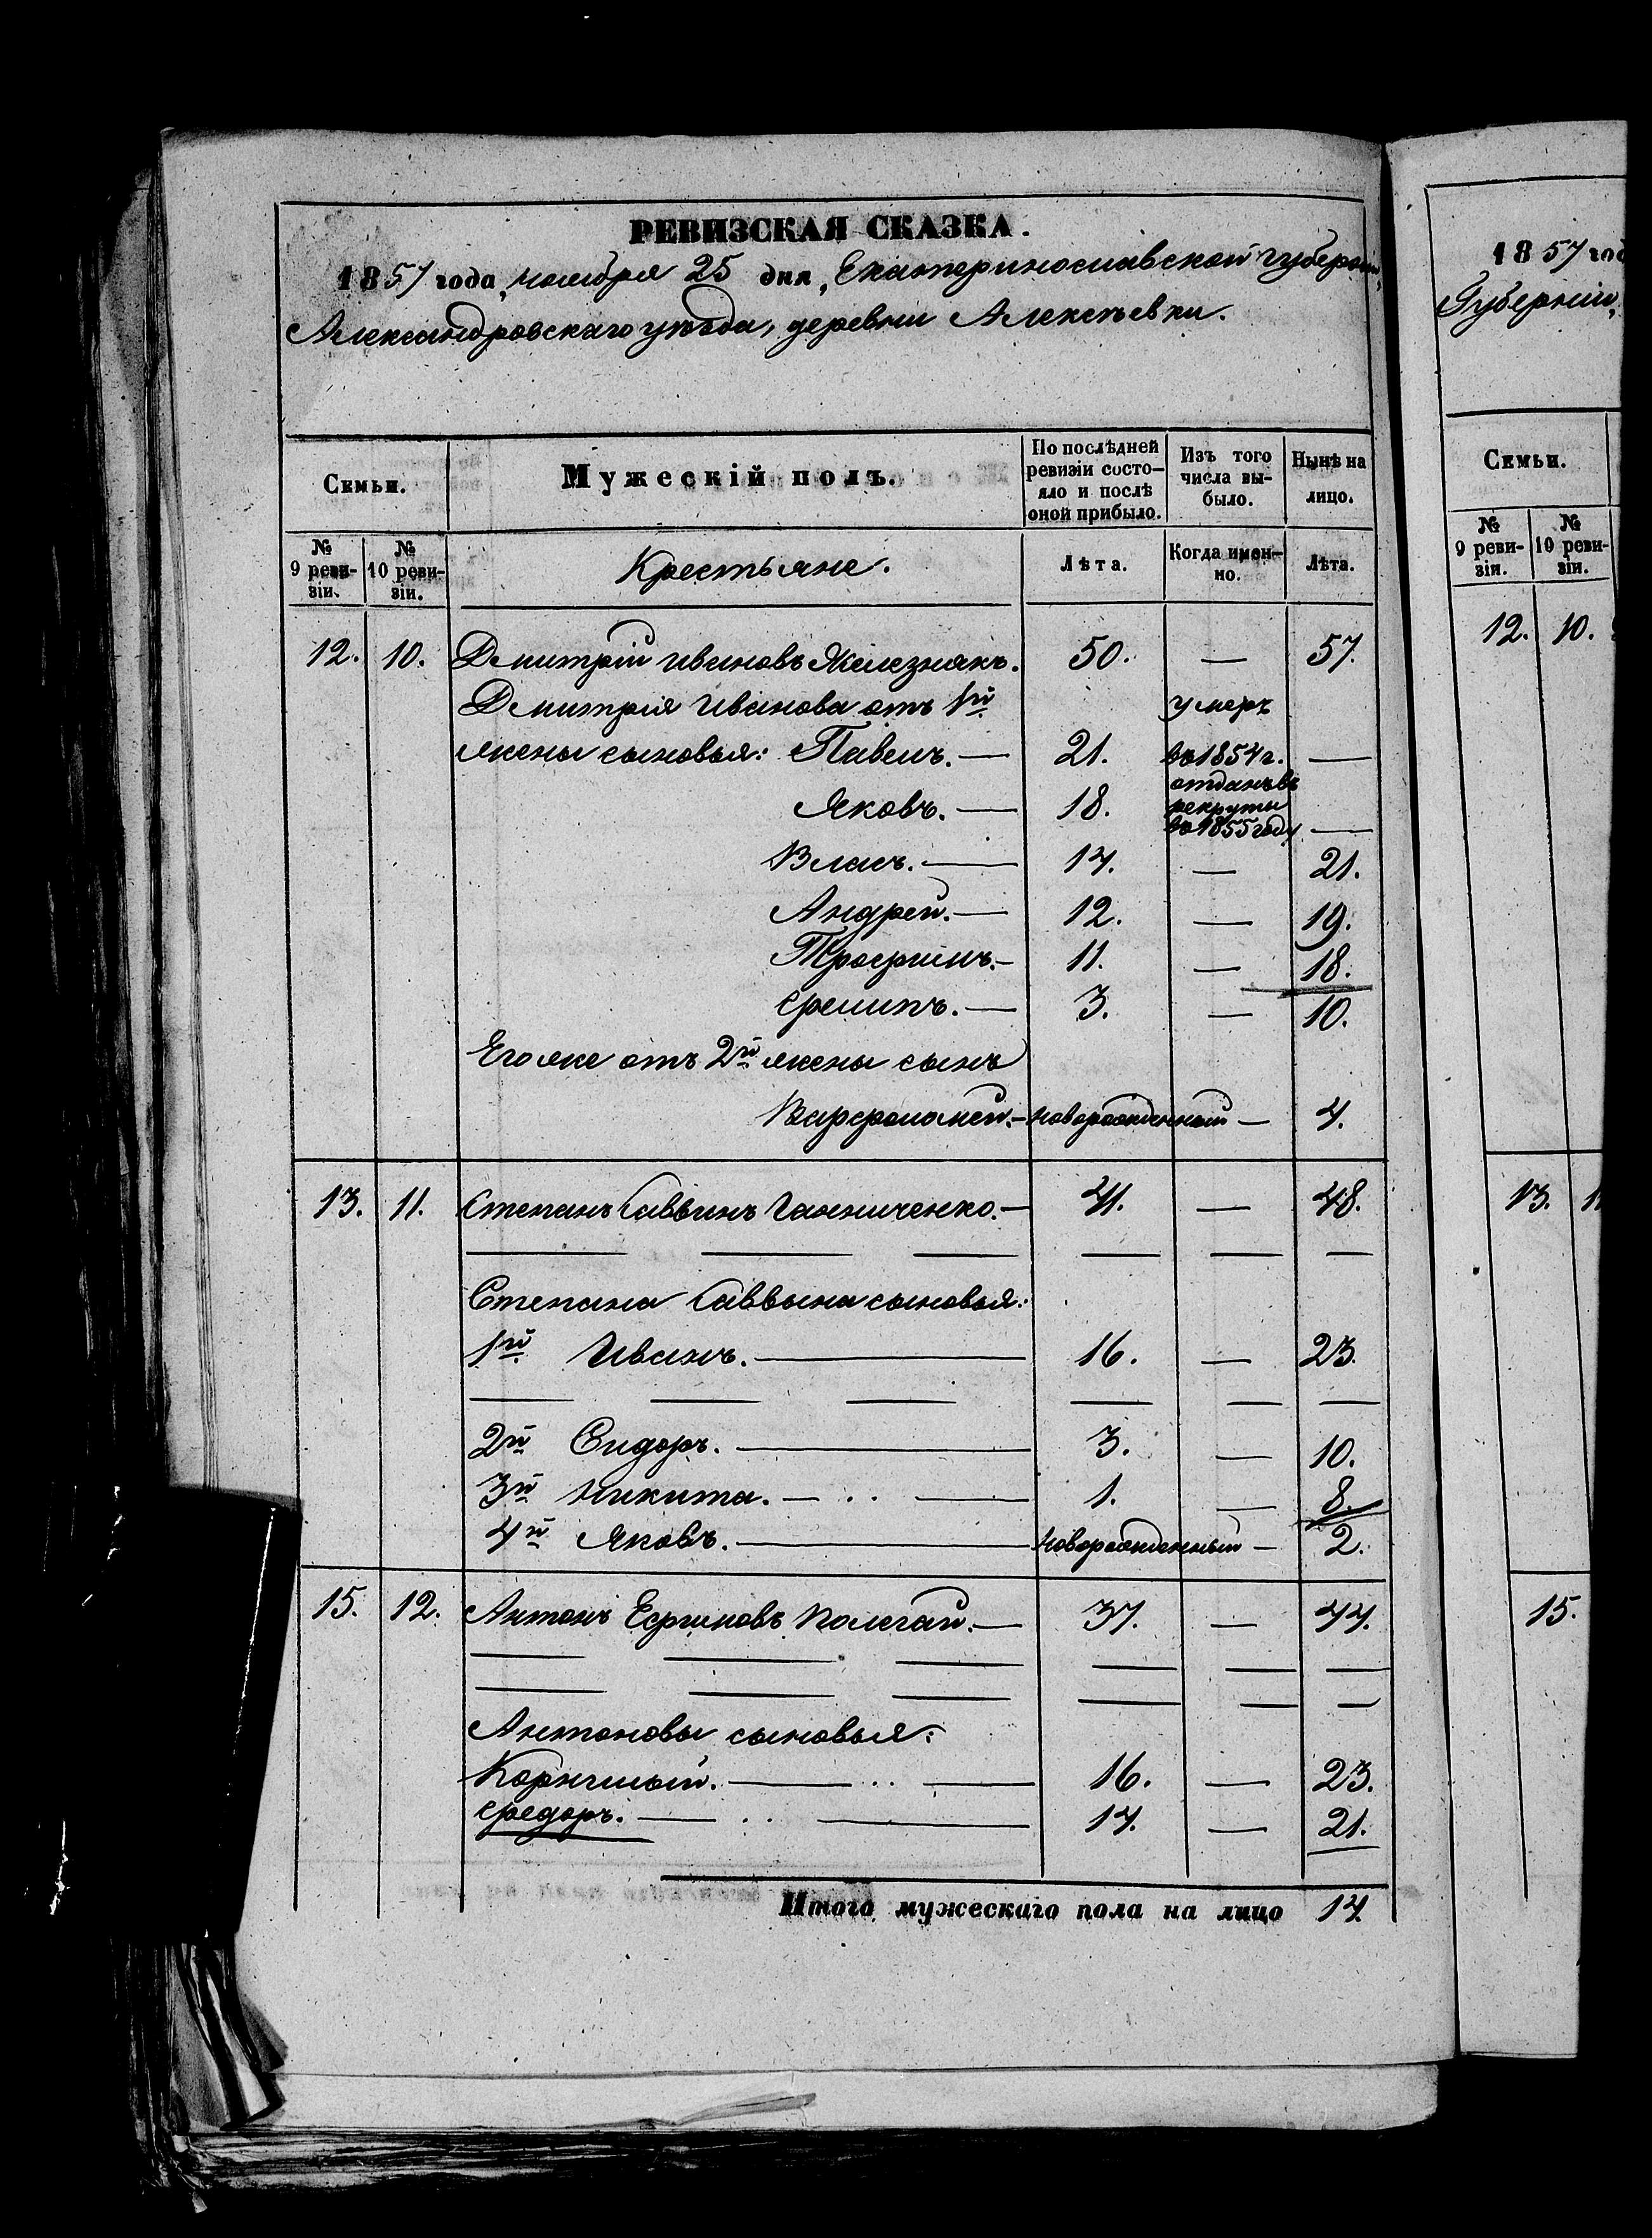 РЕВИЗСКАЯ СКАЗКА.
1857 года, ноября 25 дня, Екатеринославской губерніи,
Александровскаго уѣзда, деревни Алексѣевки.
Семьи.
Мужескій полъ.
По послѣдней
ревизіи состо-
яло и послѣ
оной прибыло.
Изъ того
числа вы-
было.
Нынѣ на
лицо.
№
9 реви-
зіи.
№
10 реви-
зіи.
Крестьяне.
Лѣта.
Когда имен-
но.
Лѣта.
12. 10. Дмитрій Ивановъ Железнякъ. 50. — 57.
Дмитрія Иванова отъ 1й умеръ
жены сыновья: Павелъ. — 21. въ 1854 г. —
отданъ въ
Яковъ. — 18. рекруты
въ 1855 году —
Власъ. — 14. — 21.
Андрей. — 12. — 19.
Трофимъ. — 11. — 18.
Филипъ. — 3. — 10.
Его же отъ 2й жены сынъ
Варфоломей. — новорожденный — 4.
13. 11. Степанъ Саввинъ Ганниченко. — 41. — 48.
Степана Саввина сыновья:
1й Иванъ. — 16. — 23.
2й Сидоръ. — 3. — 10.
3й Никита. — 1. — 8.
4й Яковъ. — новорожденный — 2.
15. 12. Антонъ Ефимовъ Колегай. — 37. — 44.
Антоновы сыновья:
Корнилий. — 16. — 23.
Федоръ. — 14. — 21.
Итого мужескаго пола на лицо 14.
1857 год
Губерніи,
Семьи.
№
9 реви-
зіи.
№
10 реви-
зіи.
12. 10.
13. 1
15.